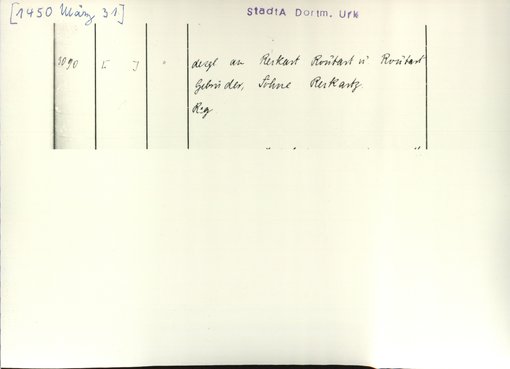 [1450 März 31]
StadtA Dortm. Urk
3090 [ ] "
desgl an Reekart Roubart u Roubart
Gebrüder, Söhne Reekartz
Reg